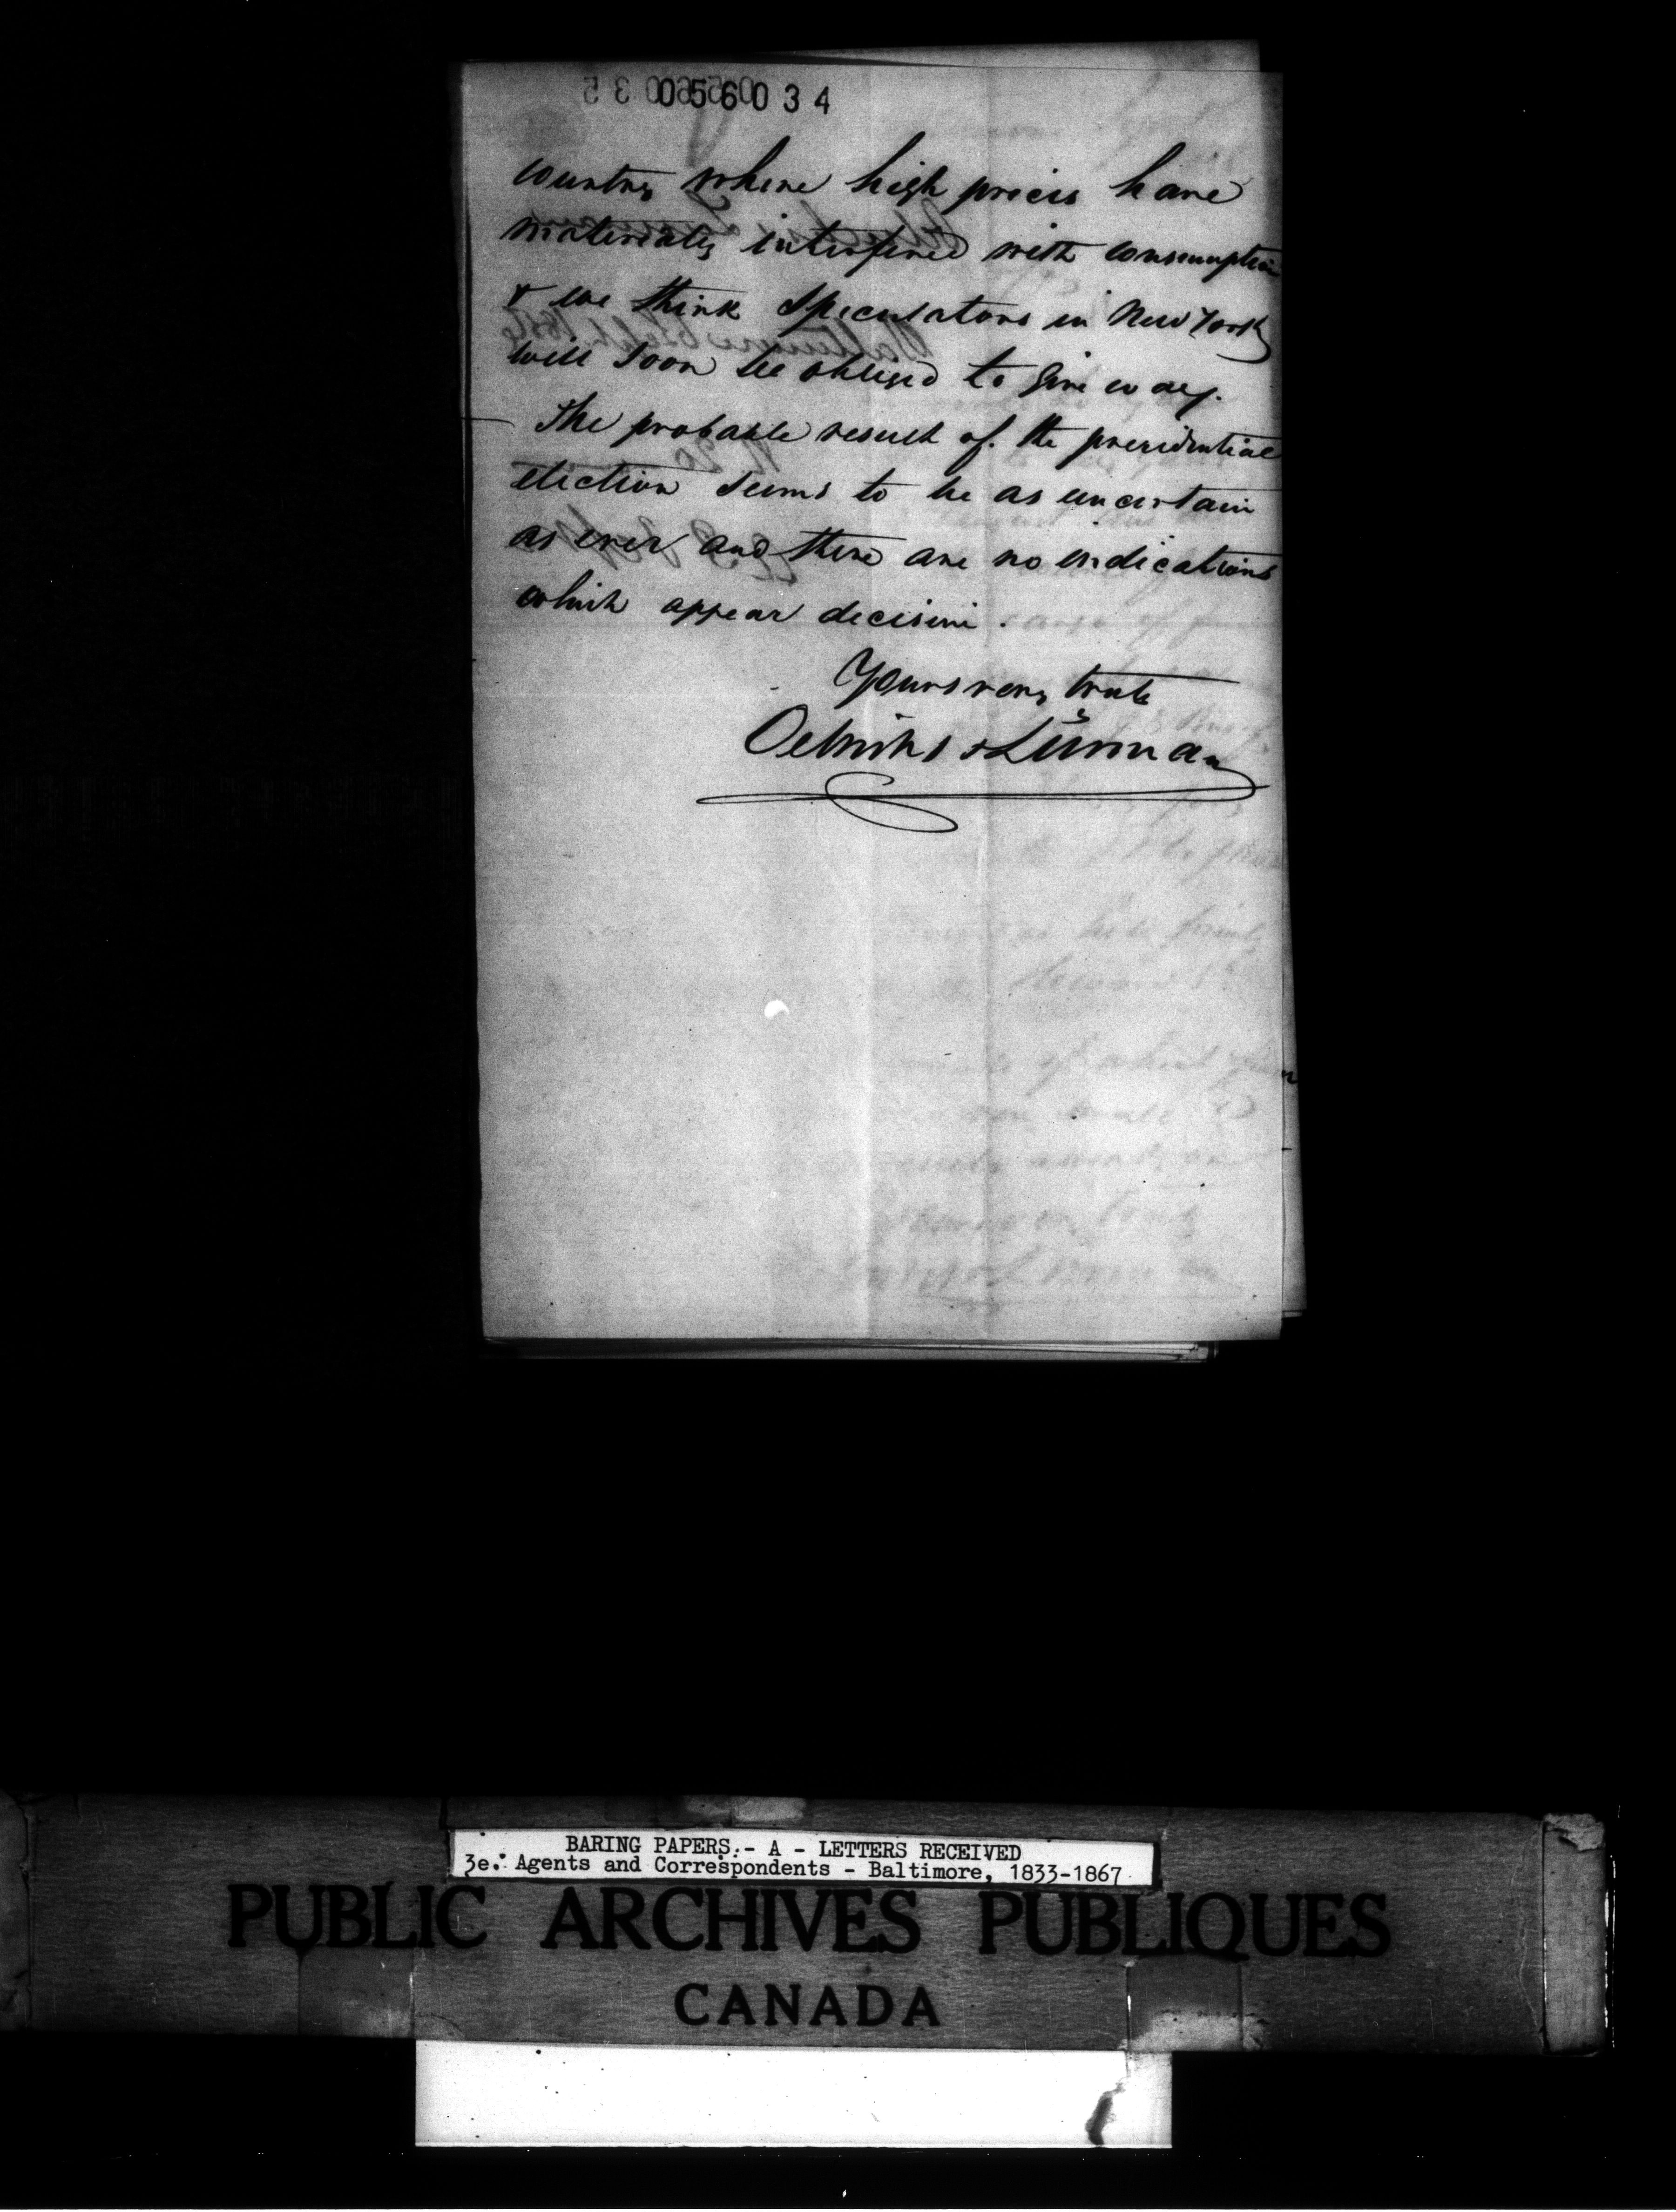 0056034
country where high prices have
materially interfered with consumption
& we think speculators in New York
will soon be obliged to give way.
The probable result of the presidential
election seems to be as uncertain
as ever and there are no indications
which appear decisive.
Yours very truly
Oelrichs & Lurman
BARING PAPERS.- A - LETTERS RECEIVED
3e. Agents and Correspondents - Baltimore, 1833-1867
PUBLIC ARCHIVES PUBLIQUES
CANADA